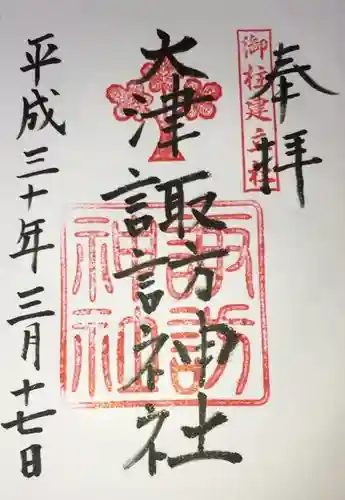 奉拝
御柱建立社
大津
諏訪神社
諏訪
神社
平成三十年三月十七日